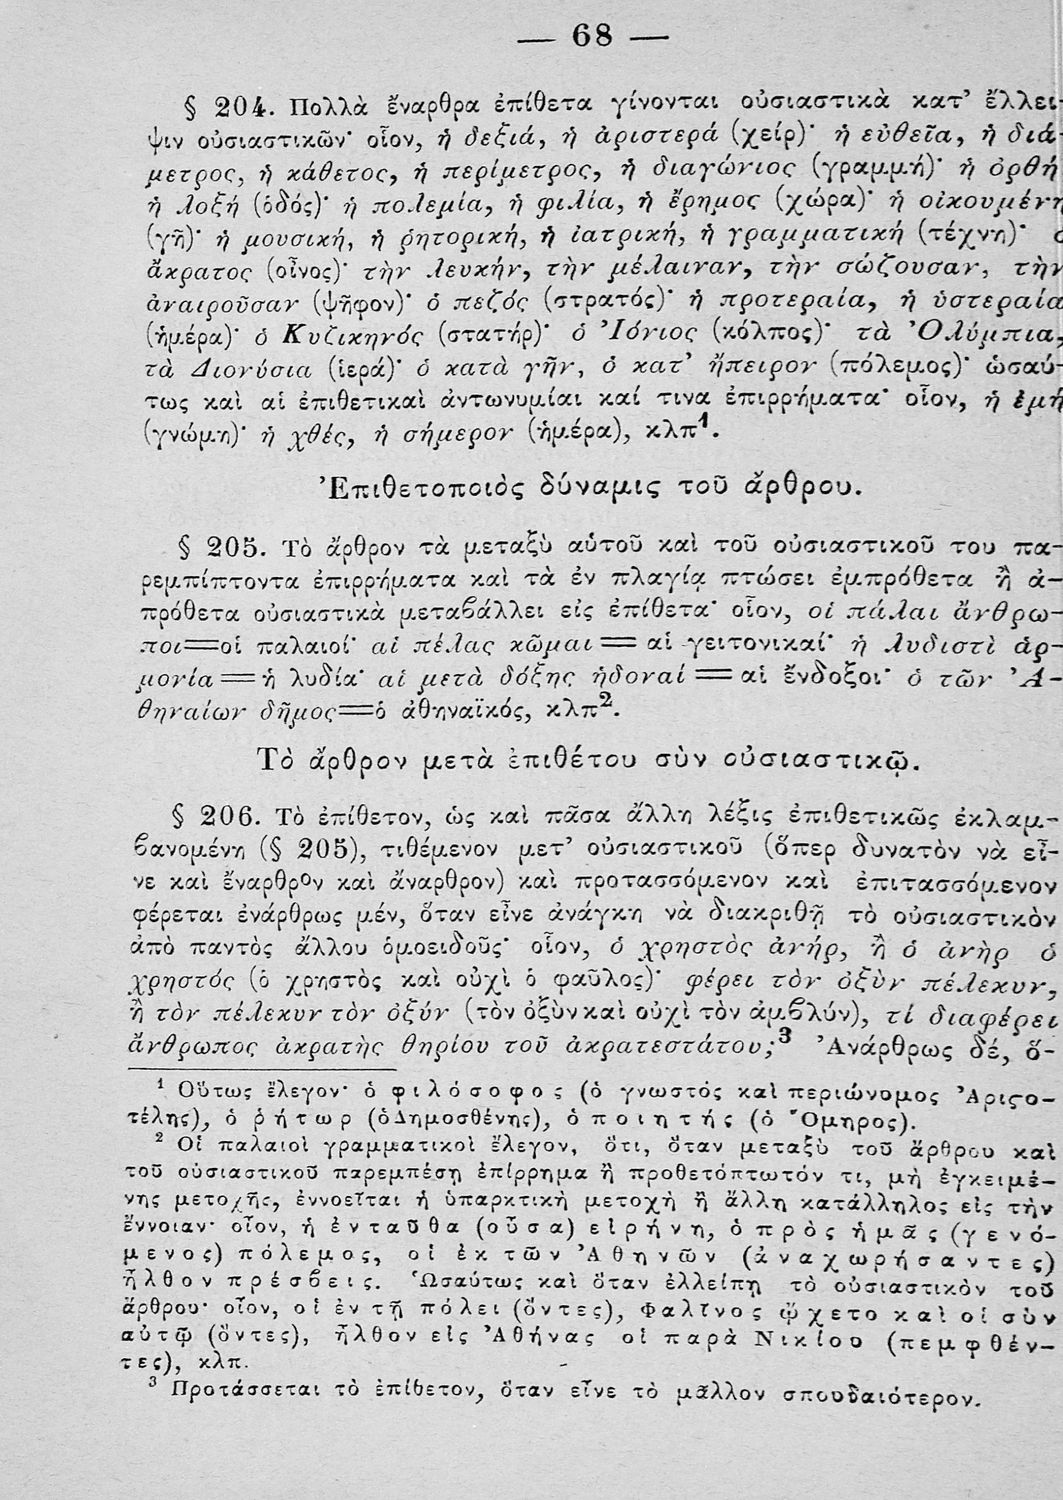 — 68 —
§ 204. Πολλὰ ἔναρθρα ἐπίθετα γίνονται οὐσιαστικὰ κατ' ἔλλει-
ψιν οὐσιαστικῶν· οἷον, ἡ δεξιά, ἡ ἀριστερά (χείρ)· ἡ εὐθεῖα, ἡ διά-
μετρος, ἡ κάθετος, ἡ περίμετρος, ἡ διαγώνιος (γραμμή)· ἡ ὀρθή
ἡ λοξή (ὁδός)· ἡ πολεμία, ἡ φιλία, ἡ ἔρημος (χώρα)· ἡ οἰκουμένη
(γῆ)· ἡ μουσική, ἡ ῥητορική, ἡ ἰατρική, ἡ γραμματική (τέχνη)· ὁ
ἄκρατος (οἶνος)· τὴν λευκήν, τὴν μέλαιναν, τὴν σώζουσαν, τὴν
ἀναιροῦσαν (ψῆφον)· ὁ πεζός (στρατός)· ἡ προτεραία, ἡ ὑστεραία
(ἡμέρα)· ὁ Κυζικηνός (στατήρ)· ὁ Ἰόνιος (κόλπος)· τὰ Ὀλύμπια,
τὰ Διονύσια (ἱερά)· ὁ κατὰ γῆν, ὁ κατ' ἤπειρον (πόλεμος)· ὡσαύ-
τως καὶ αἱ ἐπιθετικαὶ ἀντωνυμίαι καί τινα ἐπιρρήματα· οἷον, ἡ ἐμή
(γνώμη)· ἡ χθές, ἡ σήμερον (ἡμέρα), κλπ¹.
Ἐπιθετοποιὸς δύναμις τοῦ ἄρθρου.
§ 205. Τὸ ἄρθρον τὰ μεταξὺ αὑτοῦ καὶ τοῦ οὐσιαστικοῦ του πα-
ρεμπίπτοντα ἐπιρρήματα καὶ τὰ ἐν πλαγίᾳ πτώσει ἐμπρόθετα ἢ ἀ-
πρόθετα οὐσιαστικὰ μεταβάλλει εἰς ἐπίθετα· οἷον, οἱ πάλαι ἄνθρω-
ποι=οἱ παλαιοί· αἱ πέλας κῶμαι = αἱ γειτονικαί· ἡ λυδιστὶ ἁρ-
μονία = ἡ λυδία· αἱ μετὰ δόξης ἡδοναί = αἱ ἔνδοξοι· ὁ τῶν Ἀ-
θηναίων δῆμος=ὁ ἀθηναϊκός, κλπ².
Τὸ ἄρθρον μετὰ ἐπιθέτου σὺν οὐσιαστικῷ.
§ 206. Τὸ ἐπίθετον, ὡς καὶ πᾶσα ἄλλη λέξις ἐπιθετικῶς ἐκλαμ-
βανομένη (§ 205), τιθέμενον μετ' οὐσιαστικοῦ (ὅπερ δυνατὸν νὰ εἶ-
νε καὶ ἔναρθρον καὶ ἄναρθρον) καὶ προτασσόμενον καὶ ἐπιτασσόμενον
φέρεται ἐνάρθρως μέν, ὅταν εἶνε ἀνάγκη νὰ διακριθῇ τὸ οὐσιαστικὸν
ἀπὸ παντὸς ἄλλου ὁμοειδοῦς· οἷον, ὁ χρηστὸς ἀνήρ, ἢ ὁ ἀνὴρ ὁ
χρηστός (ὁ χρηστὸς καὶ οὐχὶ ὁ φαῦλος)· φέρει τὸν ὀξὺν πέλεκυν,
ἢ τὸν πέλεκυν τὸν ὀξύν (τὸν ὀξὺν καὶ οὐχὶ τὸν ἀμβλύν), τί διαφέρει
ἄνθρωπος ἀκρατὴς θηρίου τοῦ ἀκρατεστάτου;³ Ἀνάρθρως δέ, ὅ-
¹ Οὕτως ἔλεγον· ὁ φιλόσοφος (ὁ γνωστός καὶ περιώνυμος Ἀριστο-
τέλης), ὁ ῥήτωρ (ὁ Δημοσθένης), ὁ ποιητής (ὁ Ὅμηρος).
² Οἱ παλαιοὶ γραμματικοὶ ἔλεγον, ὅτι, ὅταν μεταξὺ τοῦ ἄρθρου καὶ
τοῦ οὐσιαστικοῦ παρεμπέσῃ ἐπίρρημα ἢ προθετόπτωτόν τι, μὴ ἐγκειμέ-
νης μετοχῆς, ἐννοεῖται ἡ ὑπαρκτικὴ μετοχὴ ἢ ἄλλη κατάλληλος εἰς τὴν
ἔννοιαν· οἷον, ἡ ἐνταῦθα (οὖσα) εἰρήνη, ὁ πρὸς ἡμᾶς (γενό-
μενος) πόλεμος, οἱ ἐκ τῶν Ἀθηνῶν (ἀναχωρήσαντες)
ἦλθον πρέσβεις. Ὡσαύτως καὶ ὅταν ἐλλείπῃ τὸ οὐσιαστικὸν τοῦ
ἄρθρου· οἷον, οἱ ἐν τῇ πόλει (ὄντες), Φαλῖνος ᾤχετο καὶ οἱ σὺν
αὐτῷ (ὄντες), ἦλθον εἰς Ἀθήνας οἱ παρὰ Νικίου (πεμφθέν-
τες), κλπ.
³ Προτάσσεται τὸ ἐπίθετον, ὅταν εἶνε τὸ μᾶλλον σπουδαιότερον.